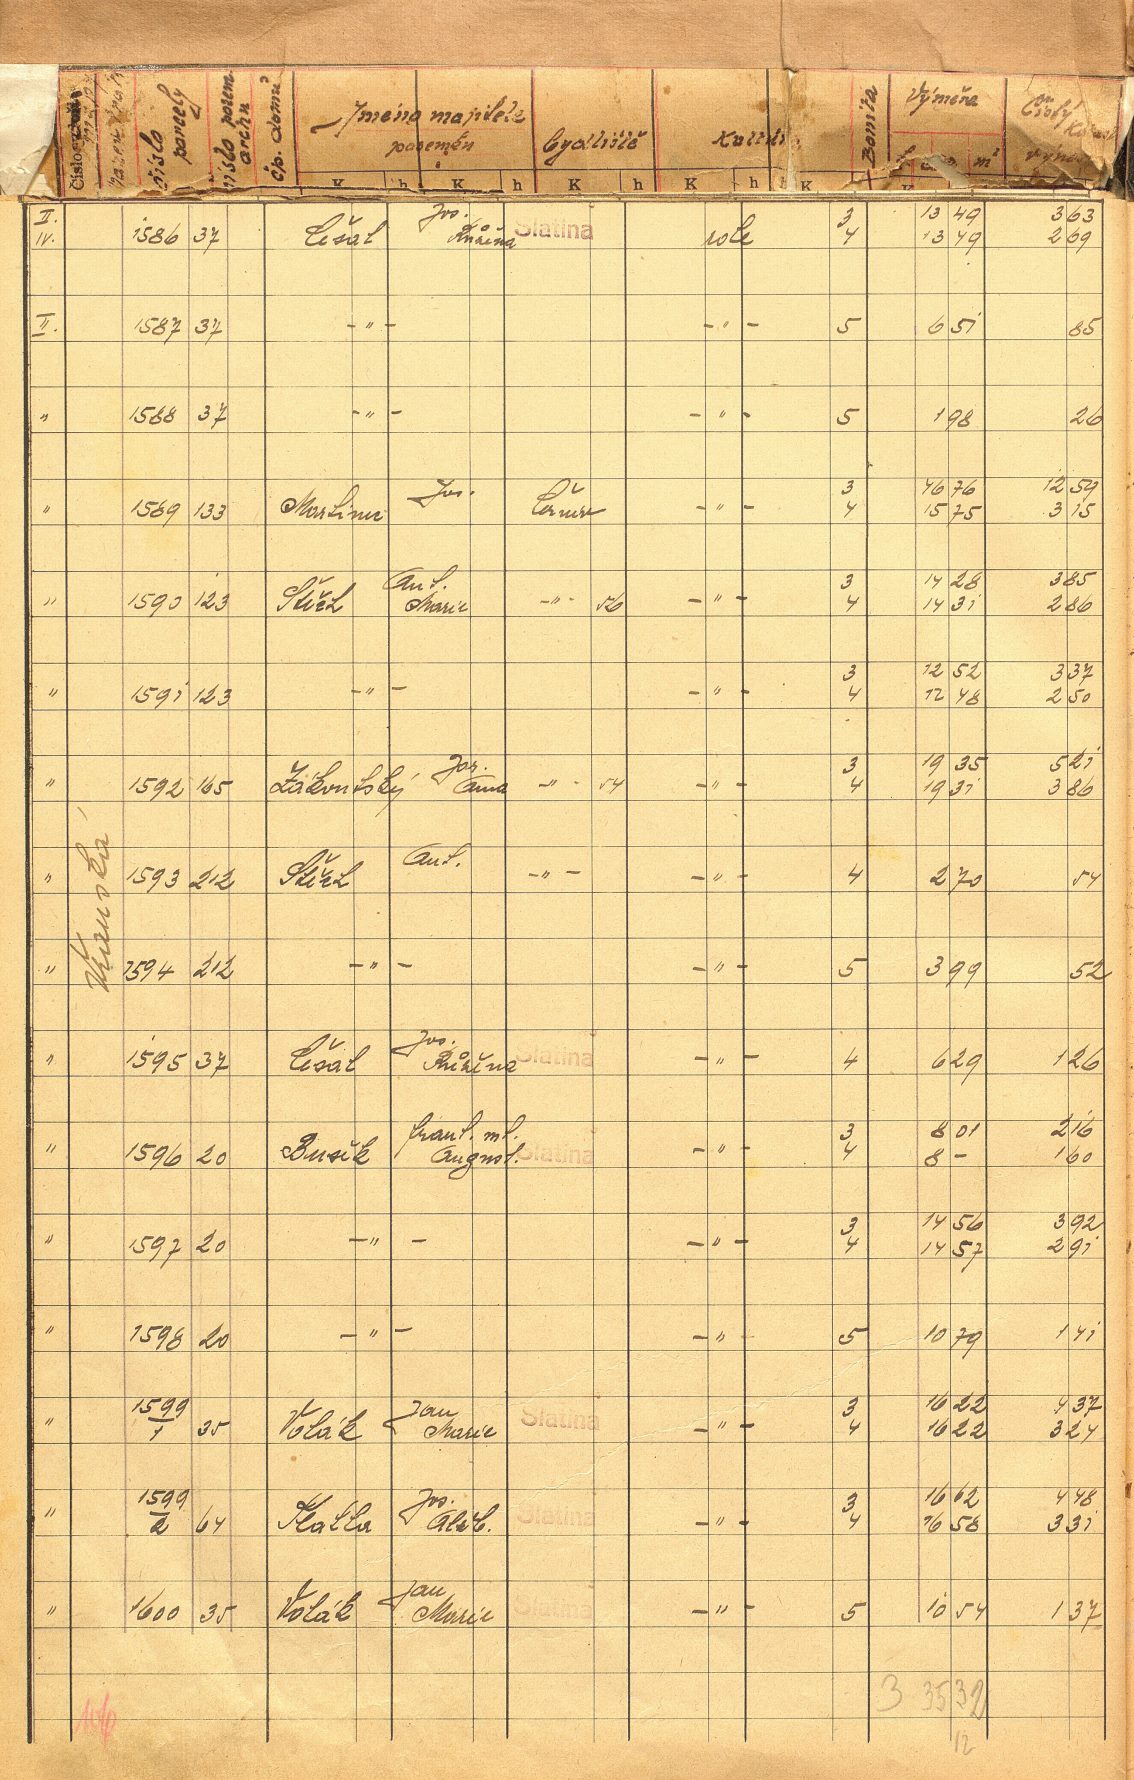 Číslo parcely Číslo pozem. archu Čp. domu Jméno majitele pozemku Bydliště Kultura Bonita Výměra m² Čistý
K h K h K h K h h K
II. IV. 1586 37 Češal Jos. Růžena Slatina role 3 13 49 3 63
4 13 49 2 69
II. 1587 37 - " - - " - 5 6 51 85
" 1588 37 - " - - " - 5 1 98 26
" 1589 133 Martinec Jos. - " - 3 46 76 12 59
4 15 75 3 15
" 1590 123 Ant. Marie - " - 56 - " - 3 14 28 3 85
4 14 31 2 86
" 1591 123 - " - - " - 3 12 52 3 37
4 12 48 2 50
" 1592 165 Jos. Anna - " - 54 - " - 3 19 35 5 21
4 19 31 3 86
" 1593 212 Ant. - " - - " - 4 2 70 54
" 1594 212 - " - - " - 5 3 99 52
" 1595 37 Češal Jos. Růžena Slatina - " - 4 6 29 1 26
" 1596 20 Busík Frant. ml. August. Slatina - " - 3 8 01 2 16
4 8 - 1 60
" 1597 20 - " - - " - 3 14 56 3 92
4 14 57 2 91
" 1598 20 - " - - " 5 10 79 1 41
" 1599/1 35 Volák Jan Marie Slatina - " - 3 16 22 4 37
4 16 22 3 24
" 1599/2 64 Jos. Alžb. Slatina - " - 3 16 62 4 48
4 16 58 3 31
" 1600 35 Volák Jan Marie Slatina - " - 5 10 54 1 37
3 35 32
12